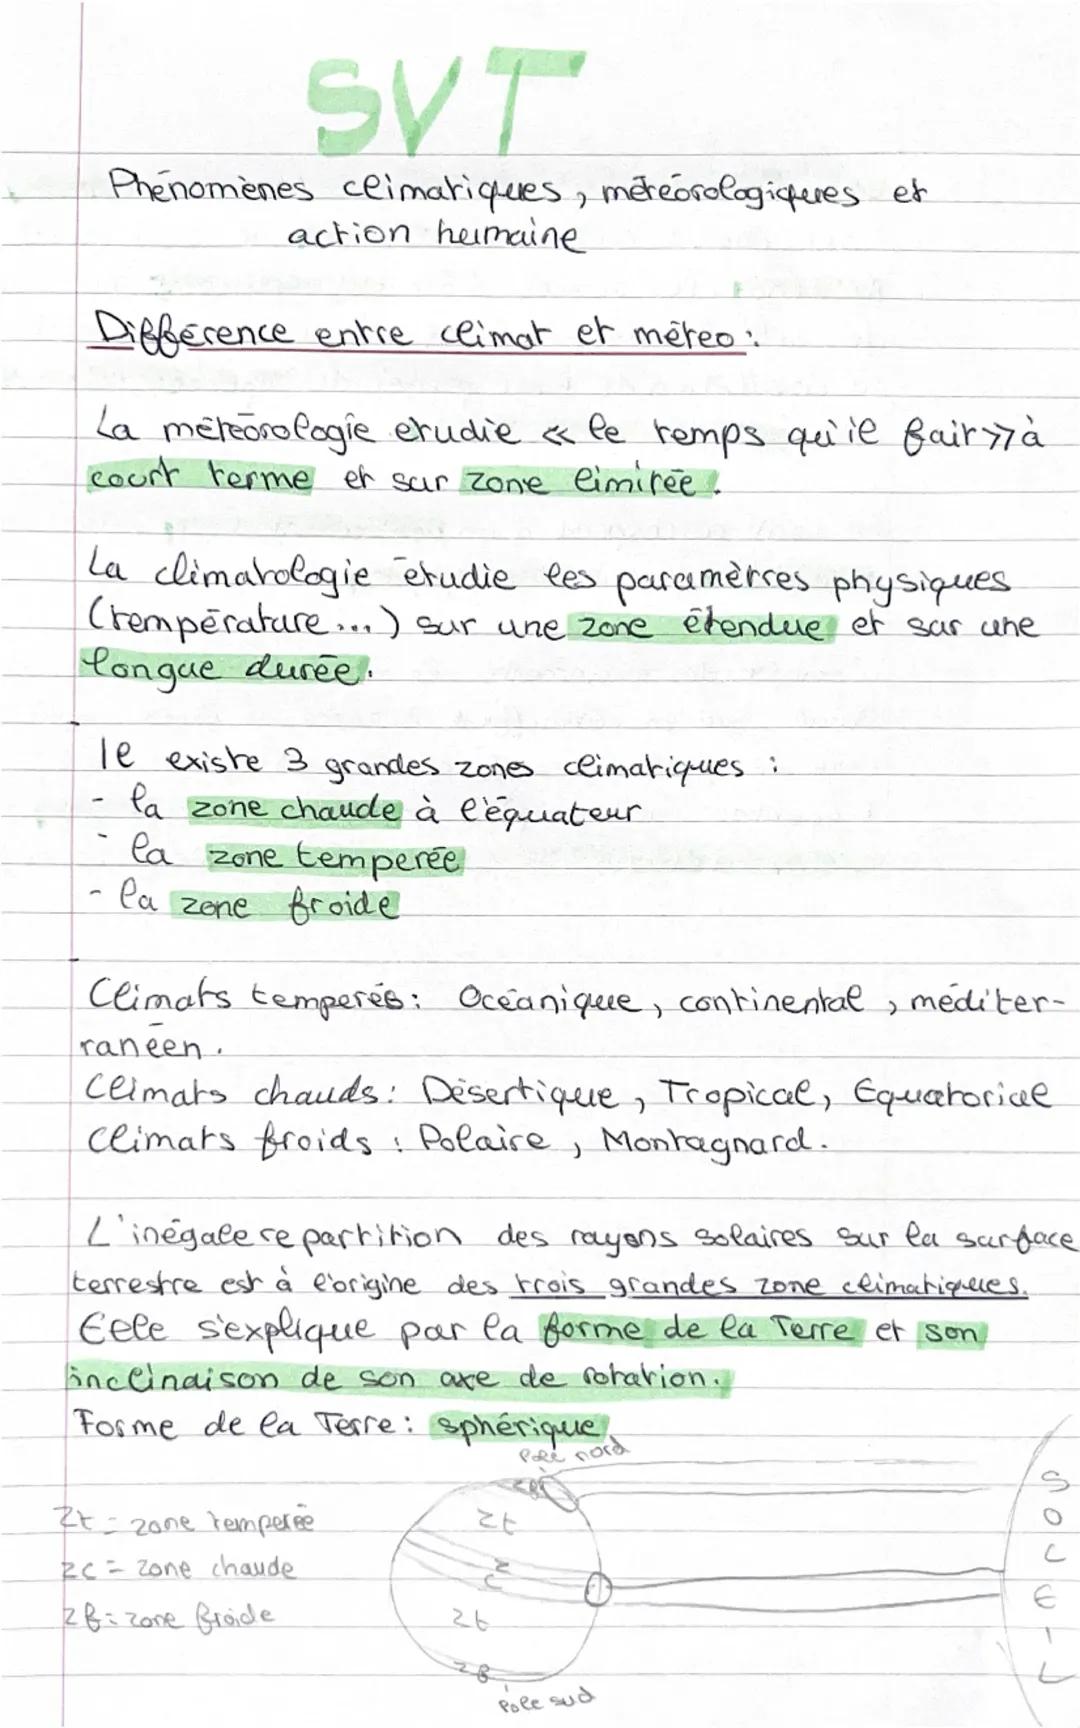 SVT
Phénomènes climatiques, météorologiques et
action humaine
Différence entre climat et méteo :
La météorologie etudie « le temps qu'il fait » à
court terme et sur zone limitée.
La climatologie étudie les paramètres physiques
(température...) sur une zone étendue et sur une
longue durée.
Il existe 3 grandes zones climatiques :
- la zone chaude à l'équateur
- la zone temperée
- la zone froide
Climats temperés : Océanique, continental, méditer-
ranéen.
Climats chauds : Désertique, Tropical, Equatorial
Climats froids : Polaire, Montagnard.
L'inégale repartition des rayons solaires sur la surface
terrestre est à l'origine des trois grandes zone climatiques.
Elle s'explique par la forme de la Terre et son
inclinaison de son axe de rotation.
Forme de la Terre : sphérique
Pole nord
zf
zt
zc
zt
zf
Pole sud
SOLEIL
Zt = zone temperée
zc = zone chaude
zf = zone froide